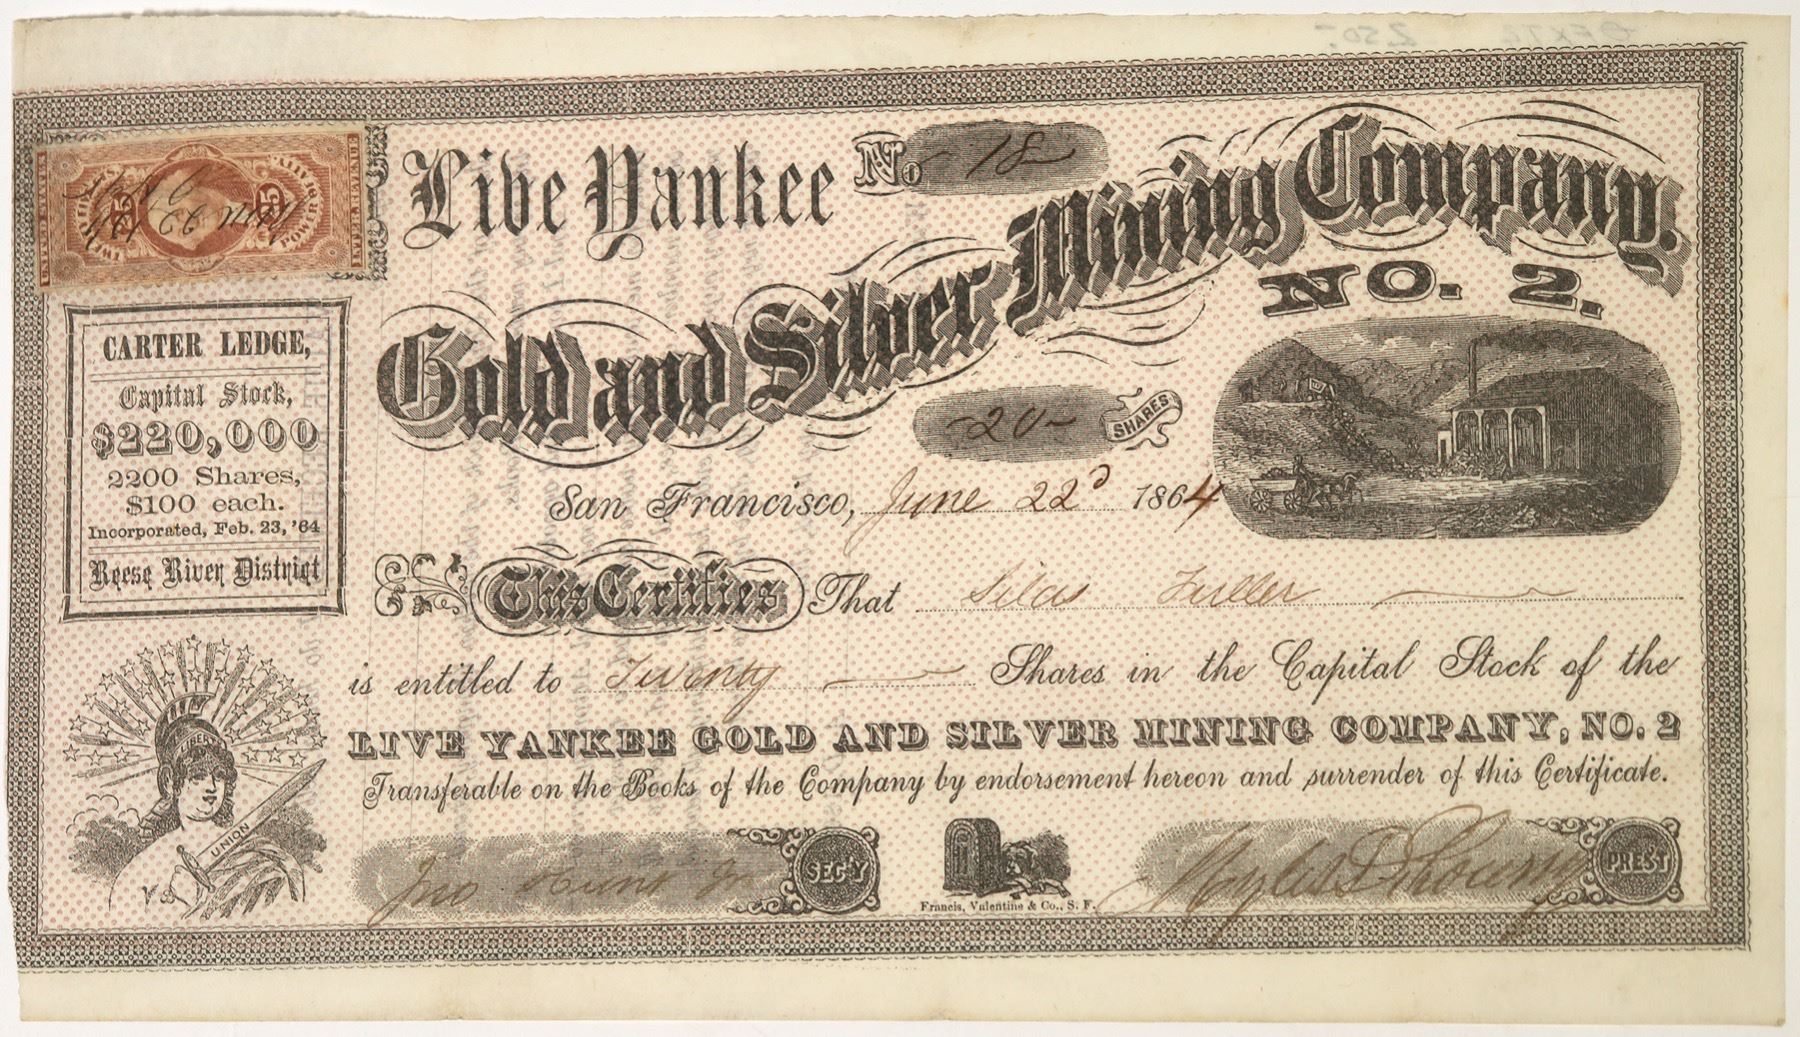 Live Yankee No. 18
Gold and Silver Mining Company.
NO. 2.
UNITED STATES
25
25
POWER
INTER. REVENUE
June 22 1864
CARTER LEDGE,
Capital Stock,
$220,000
2200 Shares,
$100 each.
Incorporated, Feb. 23, '64
Reese River District
20 SHARES
San Francisco, June 22d 1864
This Certifies That Silas Fuller
is entitled to Twenty Shares in the Capital Stock of the
LIVE YANKEE GOLD AND SILVER MINING COMPANY, NO. 2
Transferable on the Books of the Company by endorsement hereon and surrender of this Certificate.
LIBERTY
UNION
Jno Hunt Jr SEC'Y
Francis, Valentine & Co., S. F.
PRES'T